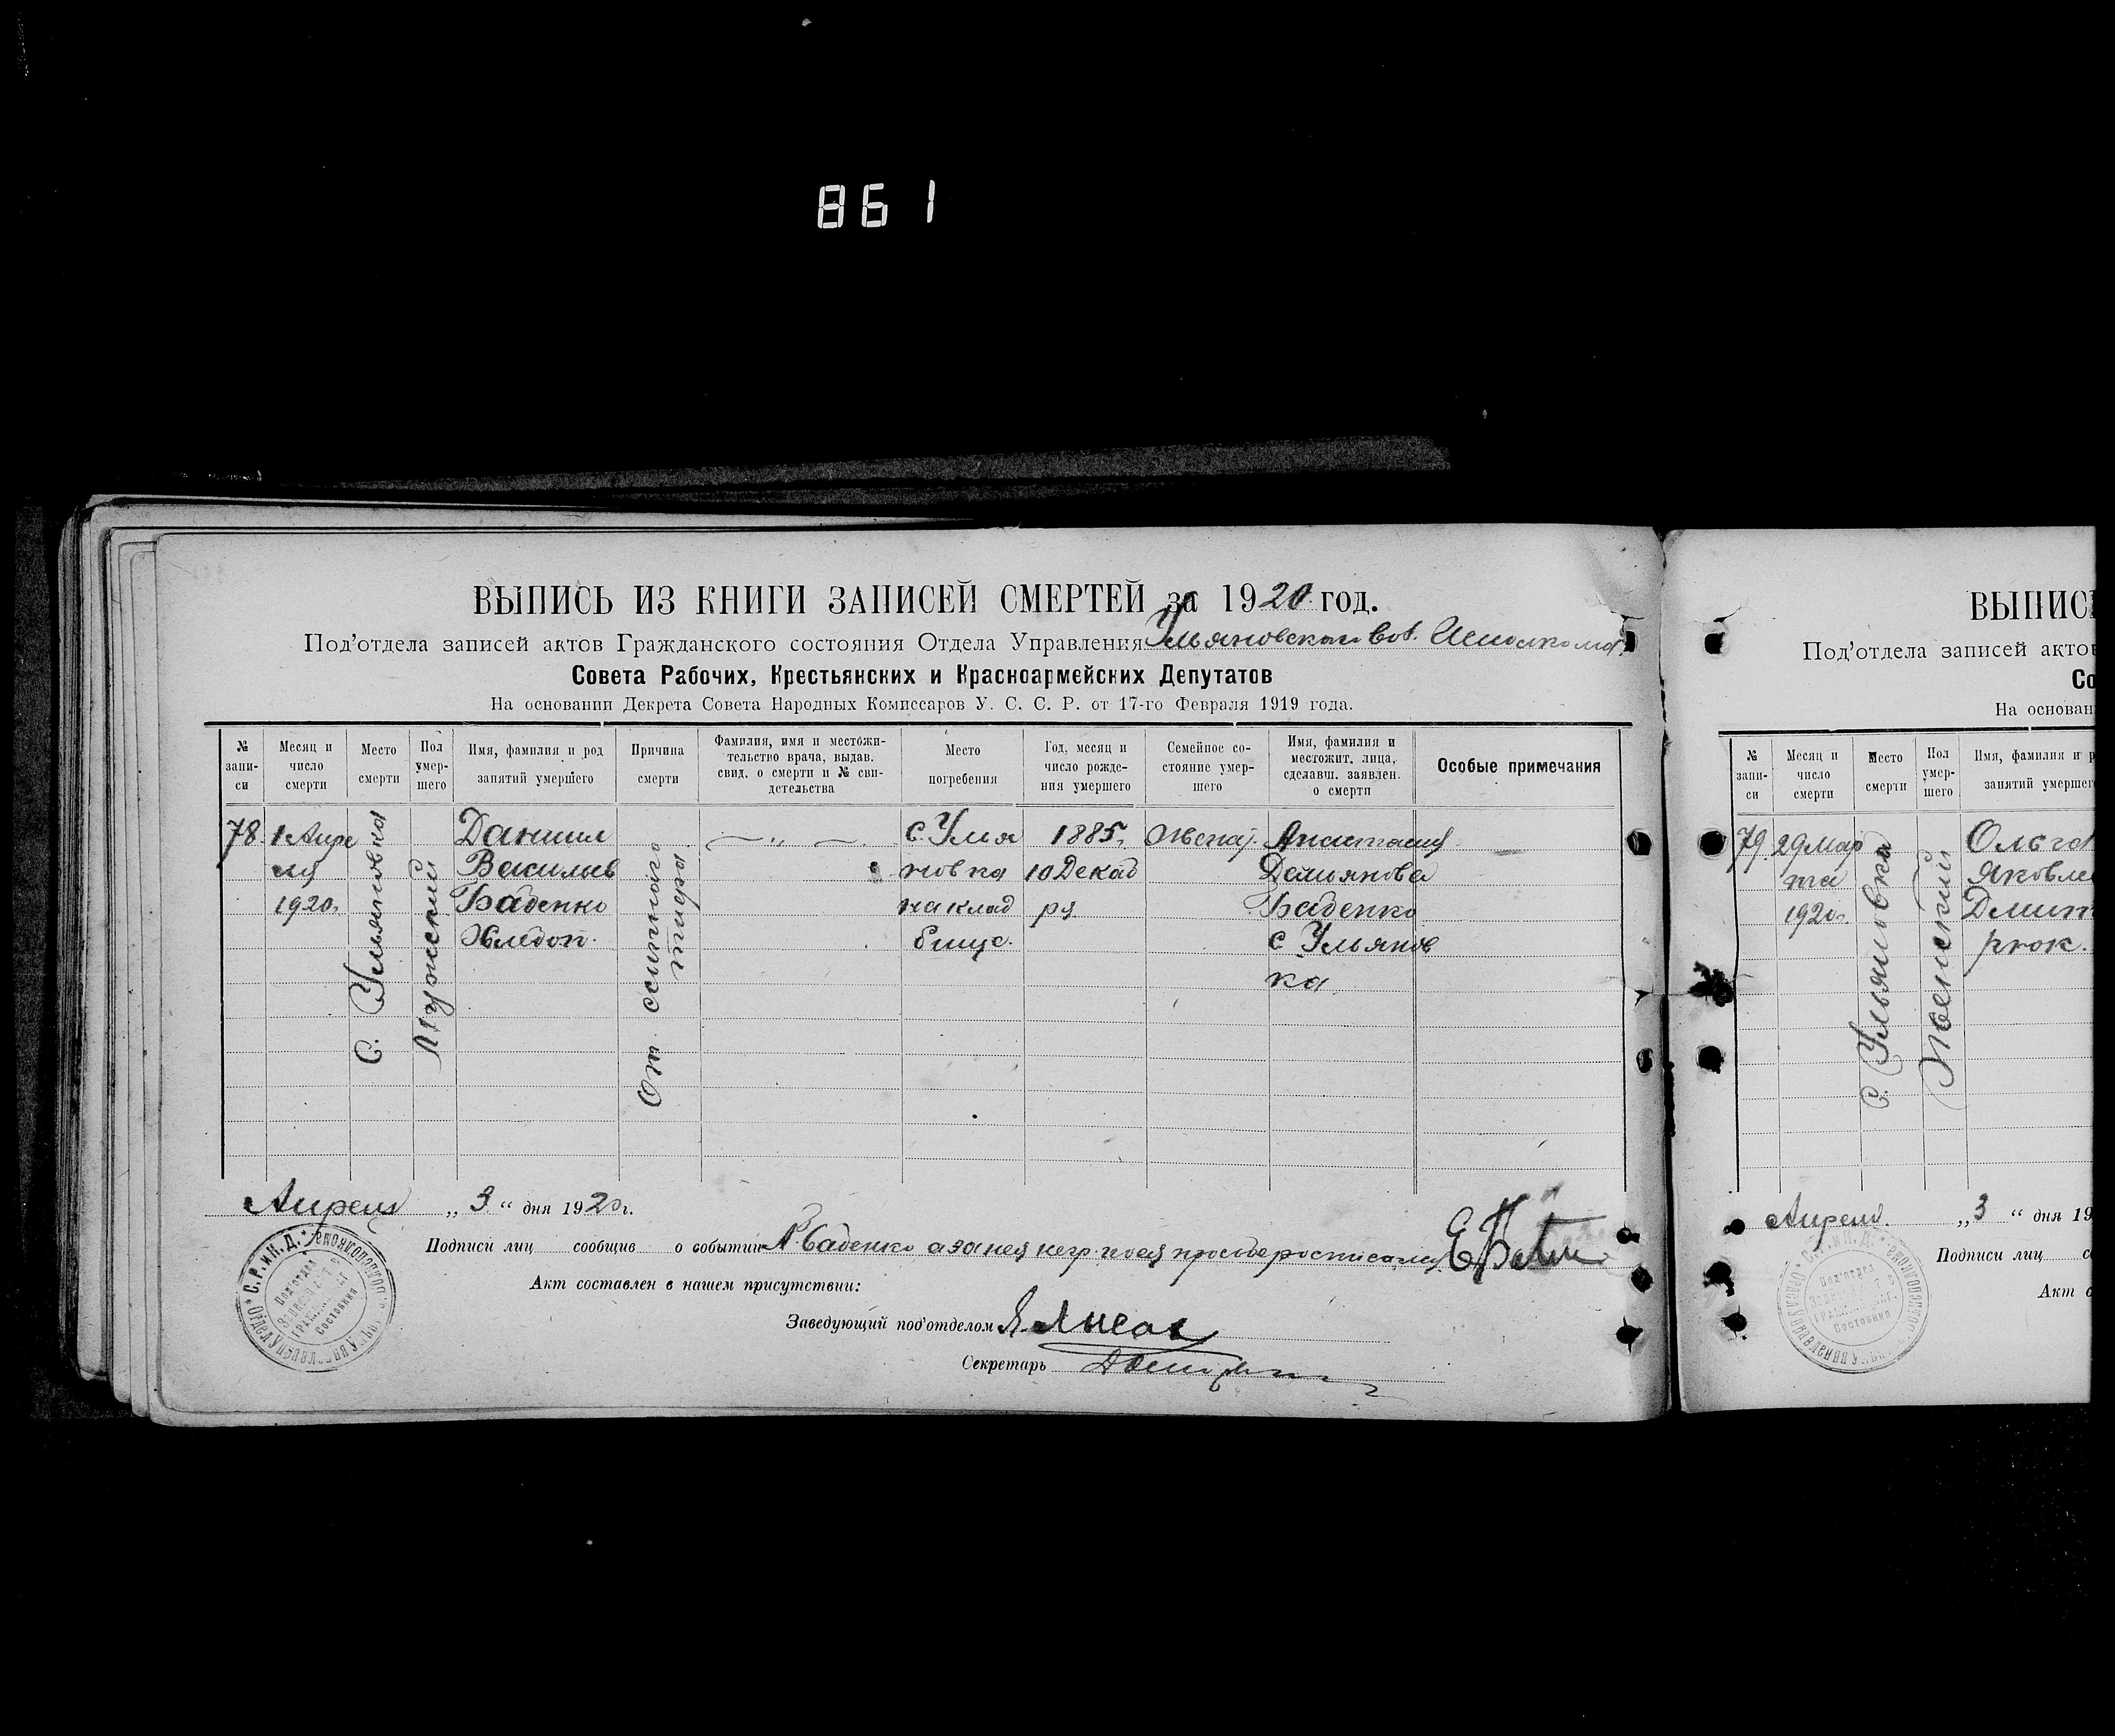 861
ВЫПИСЬ ИЗ КНИГИ ЗАПИСЕЙ СМЕРТЕЙ за 1920 год.
Под'отдела записей актов Гражданского состояния Отдела Управления Ульяновскаго Вол. Исполкома
Совета Рабочих, Крестьянских и Красноармейских Депутатов
На основании Декрета Совета Народных Комиссаров У. С. С. Р. от 17-го Февраля 1919 года.
№ запи- си
Месяц и число смерти
Место смерти
Пол умер- шего
Имя, фамилия и род занятий умершего
Причина смерти
Фамилия, имя и местожи- тельство врача, выдав. свид. о смерти и № сви- детельства
Место погребения
Год, месяц и число рожде- ния умершего
Семейное со- стояние умер- шего
Имя, фамилия и местожит. лица, сделавш. заявлен. о смерти
Особые примечания
78.
1 Апре
ля
1920г.
с. Ульяновка
Мужский
Даниил
Васильев
Баденко
Хлебоп.
От сыпного
тифа
— „ —
с. Улья
новка
на клад
бище.
1885г.
10 Декаб
ря
Женат.
Анастасия
Демьянова
Баденко
с Ульянов
ка
Апреля „ 3 “ дня 1920 г.
Подписи лиц сообщив о событии А. Баденко а за нея негр. по ея просьбе росписался
Акт составлен в нашем присутствии:
Заведующий под'отделом
Секретарь
С. Р. и К. Д.
Отдел Управления
Под'отдел
Состояния
ВЫПИС
Под'отдела записей актов
Со
На основан
№ запи- си
Месяц и число смерти
Место смерти
Пол умер- шего
Имя, фамилия и р
занятий умершег
79
29 Мар
та
1920г.
с. Ульяновка
Женский
Ольга
Яковле
Дмит
рюк.
Апреля „ 3 “ дня 19
Подписи лиц с
Акт с
С. Р. и К. Д.
Под'отдел
Состояния